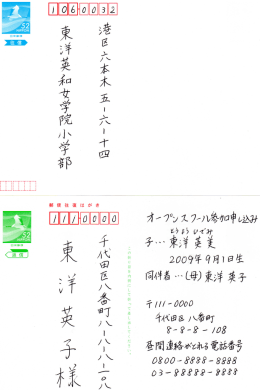 106-0032
港区六本木五-六-十四
東洋英和女学院小学部
郵便往復はがき
111-0000
千代田区八番町八-八-八-一〇八
東洋英子様
オープンスクール参加申し込み
とうよう ひでみ
子…東洋英美
2009年9月1日生
同伴者…(母)東洋英子
〒111-0000
千代田区八番町
8-8-8-108
昼間連絡がとれる電話番号
0800-8888-8888
03-88888-8888